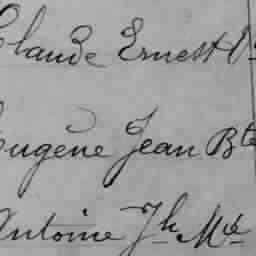 Claude Ernest
Eugène Jean Bte
Antoine Jh Mie